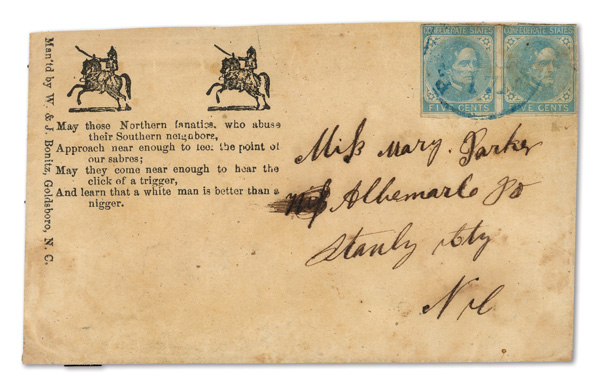 Man'td by W. & J. Bonitz, Goldsboro, N. C.
May those Northern fanatics, who abuse
their Southern neighbors,
Approach near enough to feel the point of
our sabres;
May they come near enough to hear the
click of a trigger,
And learn that a white man is better than a
nigger.
CONFEDERATE STATES
FIVE CENTS
CONFEDERATE STATES
FIVE CENTS
Miss Mary Parker
Albemarle
Stanly Cty
N C